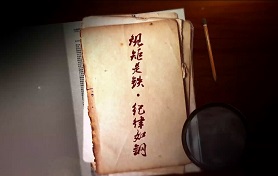 规矩是铁·纪律如钢